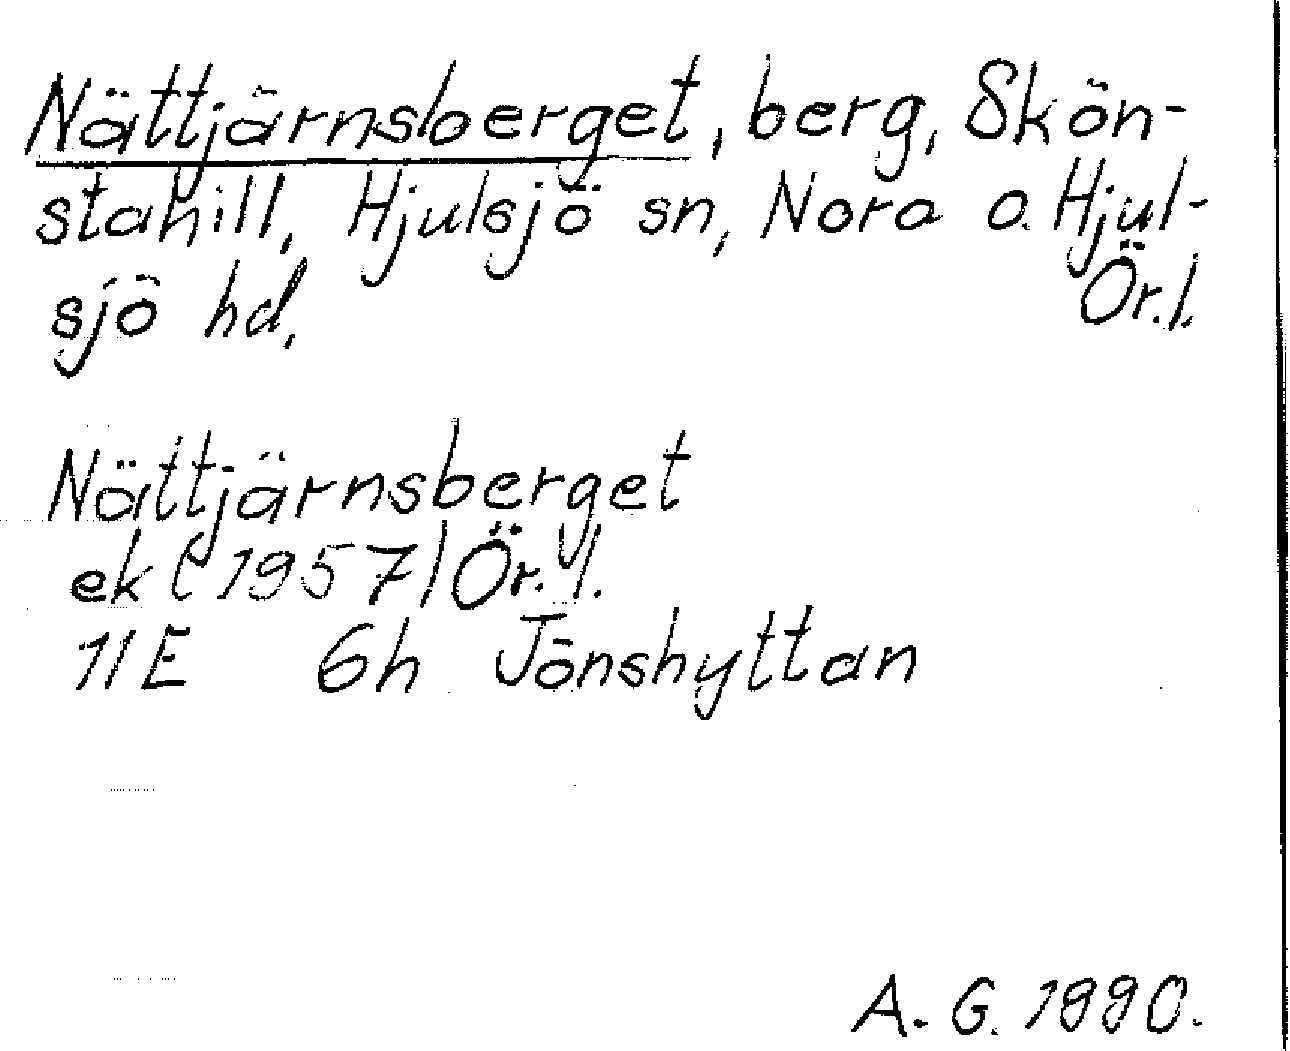 Nättjärnsberget, berg, Skön-
stahill, Hjulsjö sn, Nora o. Hjul-
sjö hd. Ör.l.
Nättjärnsberget
ek (1957) Ör.l.
11E 6h Jönshyttan
A. G. 1990.